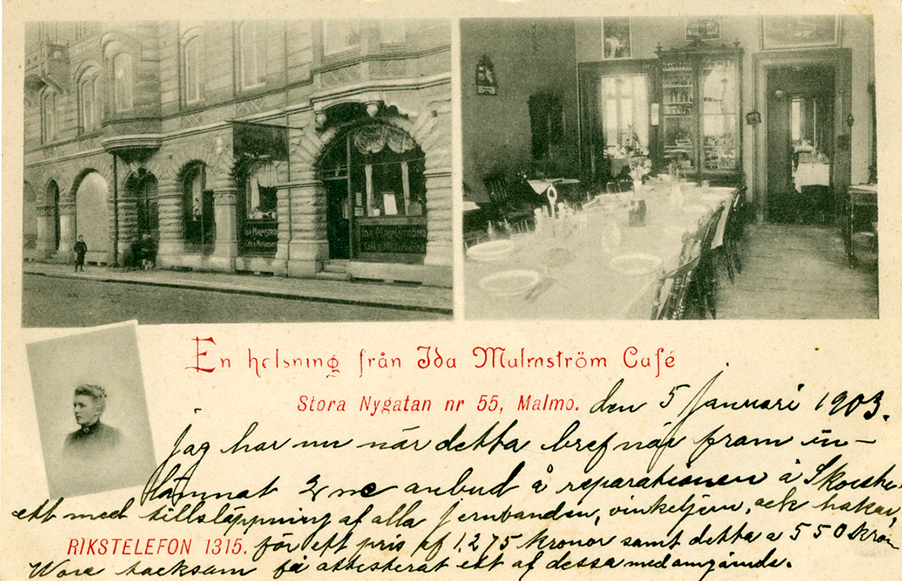 IDA MALMSTRÖM
IDA MALMSTRÖM
En helsning från Ida Malmström Café
Stora Nygatan nr 55, Malmö.
den 5 januari 1903.
jag har nu när detta bref når fram in-
lämnat 2ne anbud å reparationen å
ett med tillsläppning af alla jernbanden, vinkeljern, och hakar,
RIKSTELEFON 1315.
för ett pris af 1,275 kronor samt detta a 550 kron
Wore tacksam få attesterat ett af dessa medomgående.